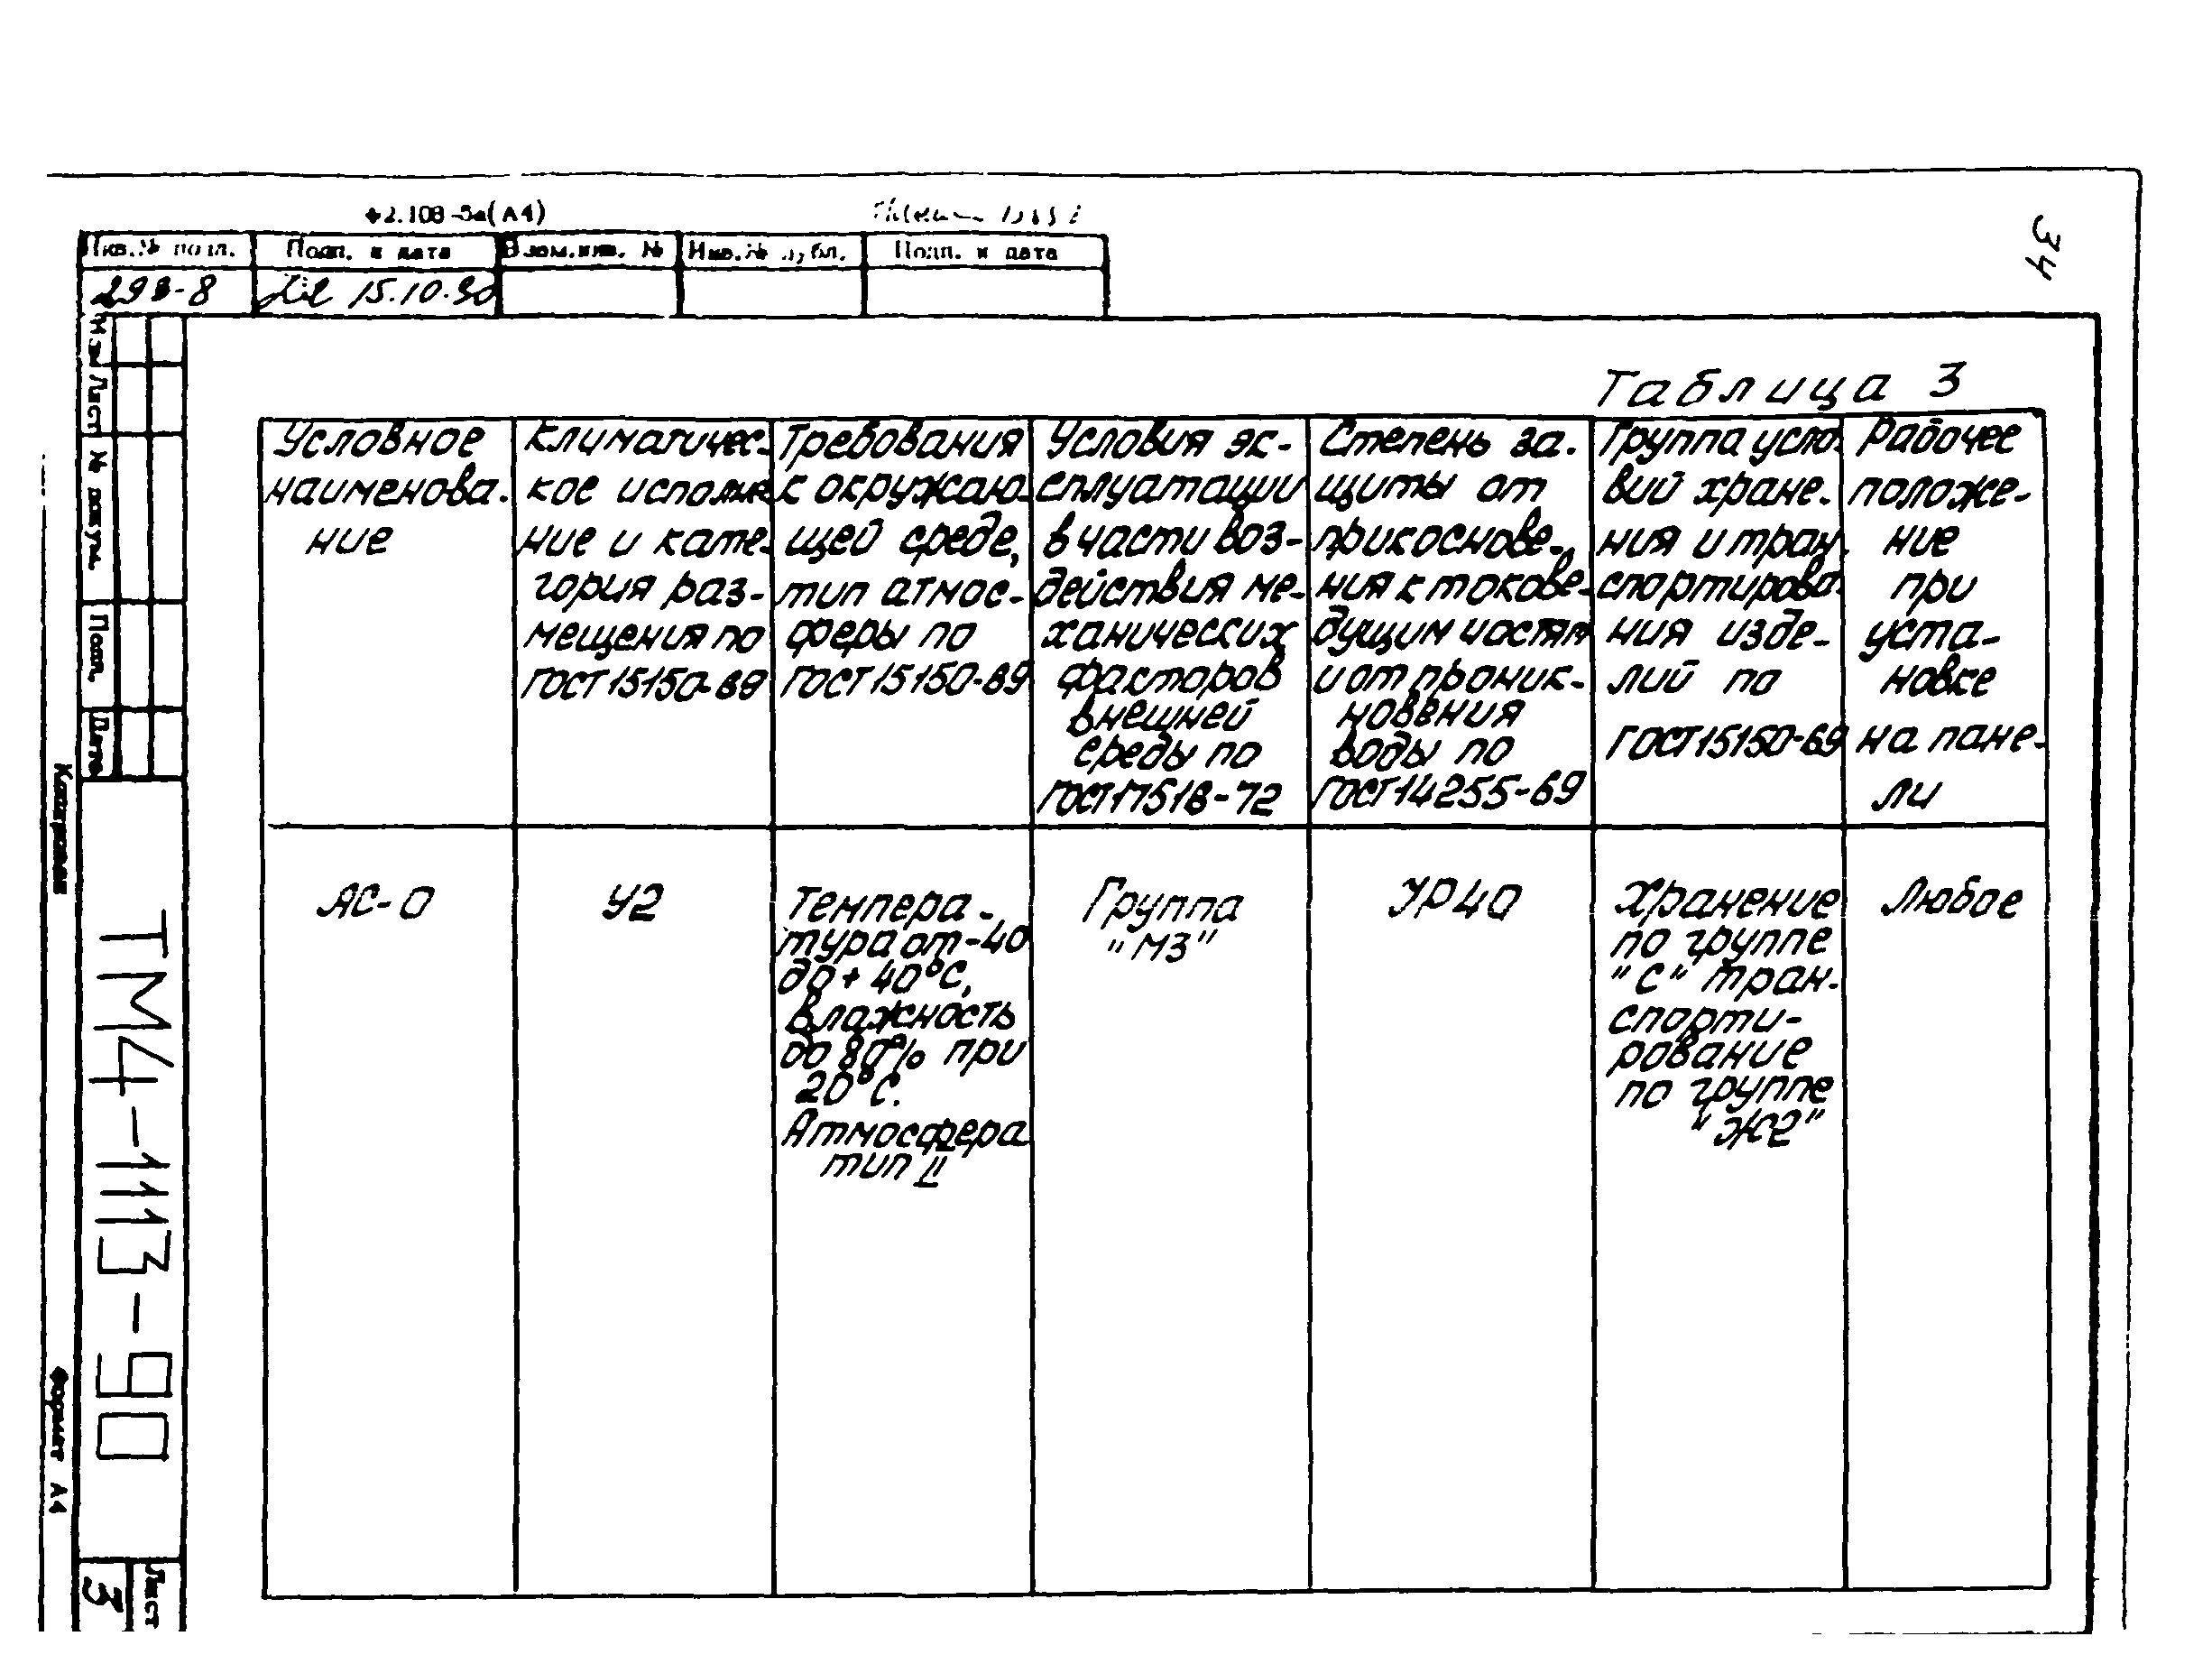 ф2.108-5а(А4)
34
Инв.№ подл. Подп. и дата Взам.инв. № Инв.№ дубл. Подп. и дата
293-8 15.10.90
Лист № докум. Подп. Дата
Копировал
Формат А4
ТМ4-113-90
Лист
3
Таблица 3
Условное
наименова-
ние
Климатичес-
кое исполне
ние и кате-
гория раз-
мещения по
ГОСТ 15150-69
Требования
к окружаю-
щей среде,
тип атмос-
феры по
ГОСТ 15150-69
Условия эк-
сплуатации
в части воз-
действия ме-
ханических
факторов
внешней
среды по
ГОСТ 17516-72
Степень за-
щиты от
прикоснове-
ния к токове-
дущим частям
и от проник-
новения
воды по
ГОСТ 14255-69
Группа усло-
вий хране-
ния и тран-
спортирова-
ния изде-
лий по
ГОСТ 15150-69
Рабочее
положе-
ние
при
уста-
новке
на пане-
ли
АС-0
У2
Темпера-
тура от -40
до + 40°С,
влажность
до 80% при
20°С.
Атмосфера
тип II
Группа
"М3"
УР40
Хранение
по группе
"С" тран-
спорти-
рование
по группе
"Ж2"
Любое